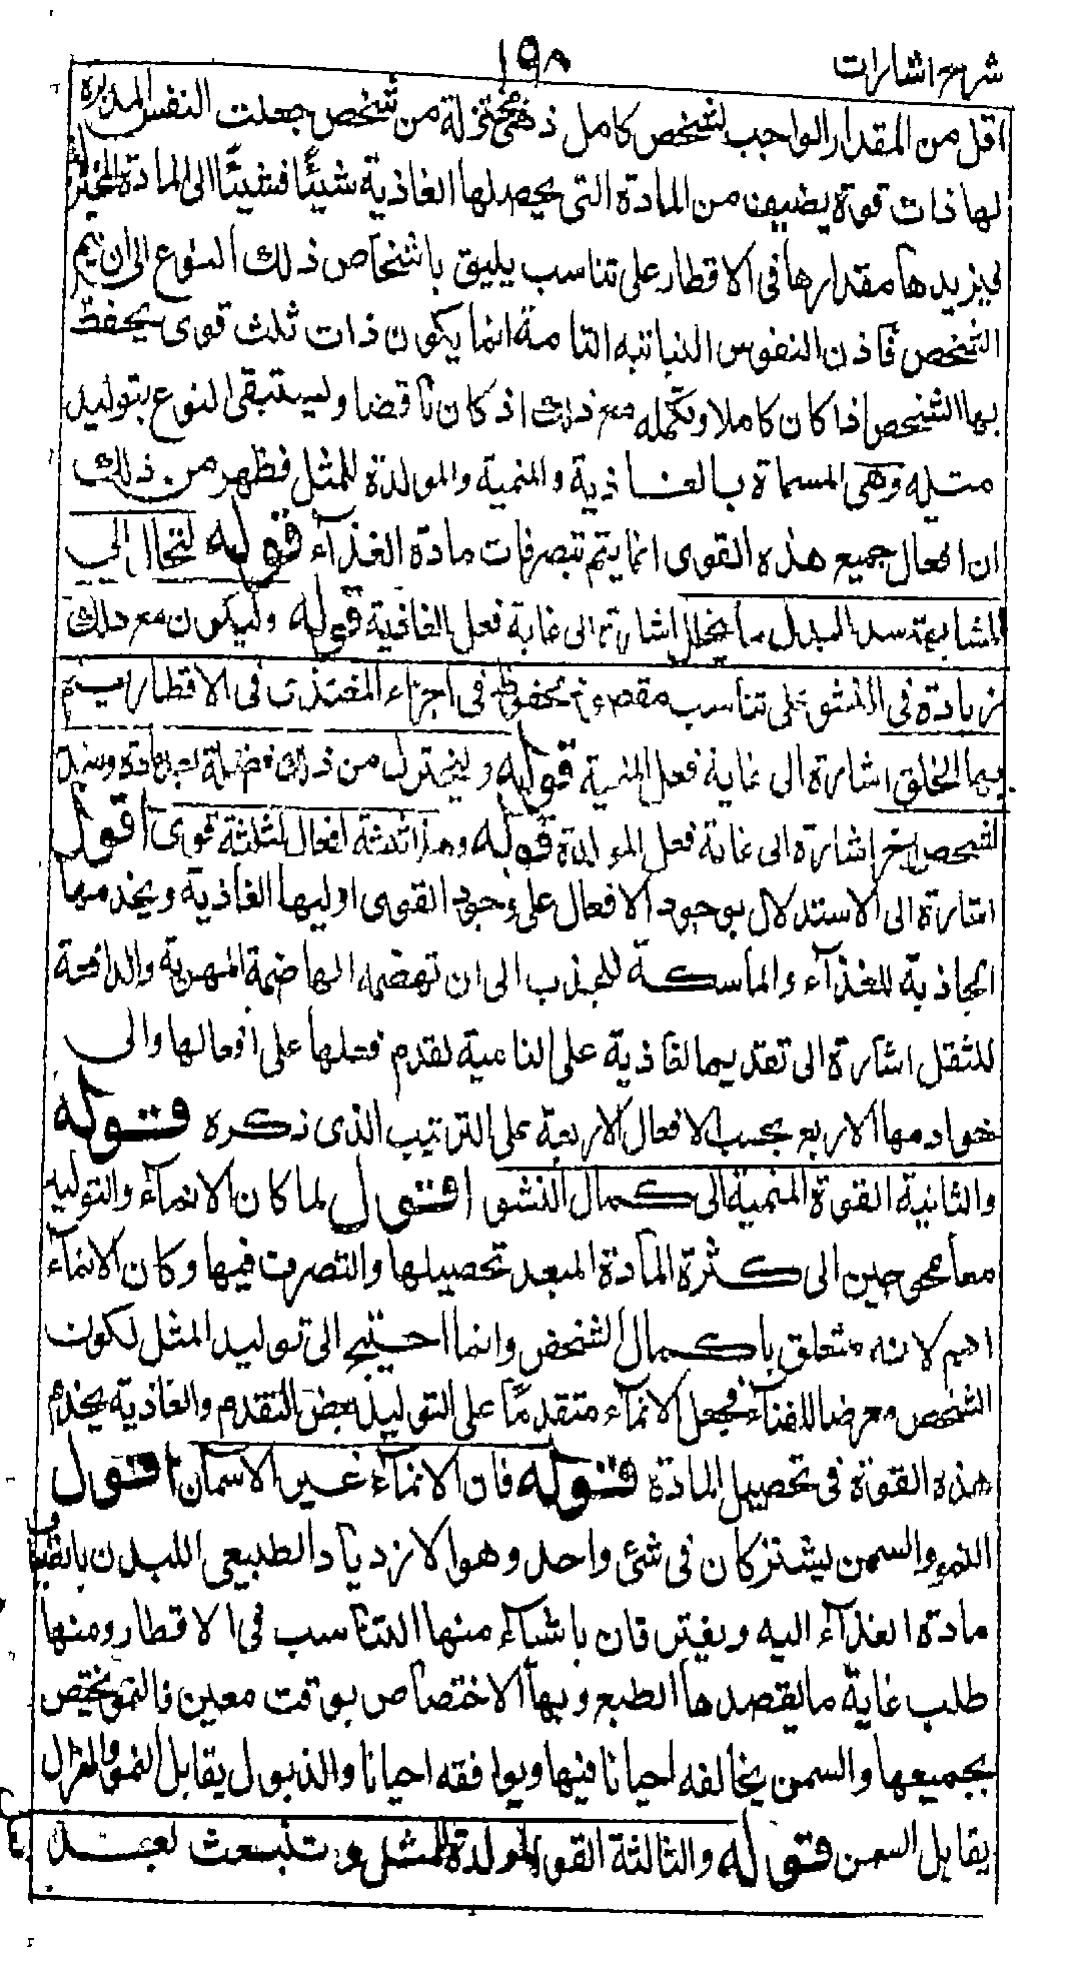 شرح اشارات
١٩٨
اقل من المقدار الواجب لشخص كامل ذ هى مختزلة من شخص جعلت النفس المدبرة
لها ذات قوة يضيف من المادة التى يحصلها الغاذية شيئًا فشيئًا الى المادة المختزلة
فيزيدها مقدارها فى الاقطار على تناسب يليق باشخاص ذلك النوع الى ان يتم
الشخص فاذن النفوس النباتيه التامة انما يكون ذات ثلث قوى يحفظ
بها الشخص اذا كان كاملا وتكمله مع ذلك اذ كان ناقصا وليستبقى النوع بتوليد
مثله وهى المسماة بالغاذية والمنمية والمولدة للمثل فظهر من ذلك
ان افعال جميع هذه القوى انما يتم بتصرفات مادة الغذآء قوله لتحال الى
المشابهة سد البدل ما يتحلل اشارة الى غاية فعل الغاذية قوله وليكون مع ذلك
زيادة فى النشو على تناسب مقصود محفوظ فى اجزاء المغتذى فى الاقطار يتم
بها الخلق اشارة الى غاية فعل المنمية قوله وليختزل من ذلك فضلة يعد مادة ومبدأ
لشخص اخر اشارة الى غاية فعل المولدة قوله وهذا ثلثة افعال لثلثة قوى اقول
اشارة الى الاستدلال بوجود الافعال على وجود القوى اوليها الغاذية ويخدمها
الجاذبة للغذآء والماسكة للجذب الى ان تهضمه الهاضمة المهرية والدافعة
للثقل اشارة الى تقديم الغاذية على النامية لتقدم فعلها على افعالها والى
خوادمها الاربع بحسب الافعال الاربعة على الترتيب الذى ذكره قوله
والثانية القوة المنمية الى كمال النشو اقول لما كان الانمآء والتوليد
معا محوجين الى كثرة المادة المبعد تحصيلها والتصرف فيها وكان الانمآء
اهم لانه متعلق باكمال الشخص وانما احتيج الى توليد المثل لكون
الشخص معرضا للفناء فجعل الانمآء متقدمًا على التوليد بعض التقدم والغاذية يخدم
هذه القوة فى تحصيل المادة قوله فان الانمآء غير الاسمان اقول
النمو والسمن يشتركان فى شئ واحد وهو الازدياد الطبيعى للبدن بانضياف
مادة الغذآء اليه ويفترقان باشياء منها التناسب فى الاقطار ومنها
طلب غاية ما يقصدها الطبع وبها الاختصاص بوقت معين فالنمو يختص
بجميعها والسمن يخالفه احيانا فيها ويوافقه احيانا والذبول يقابل النمو والهزال
يقابل السمن قوله والثالثة القوة المولدة للمثل وتنبعث لعبد